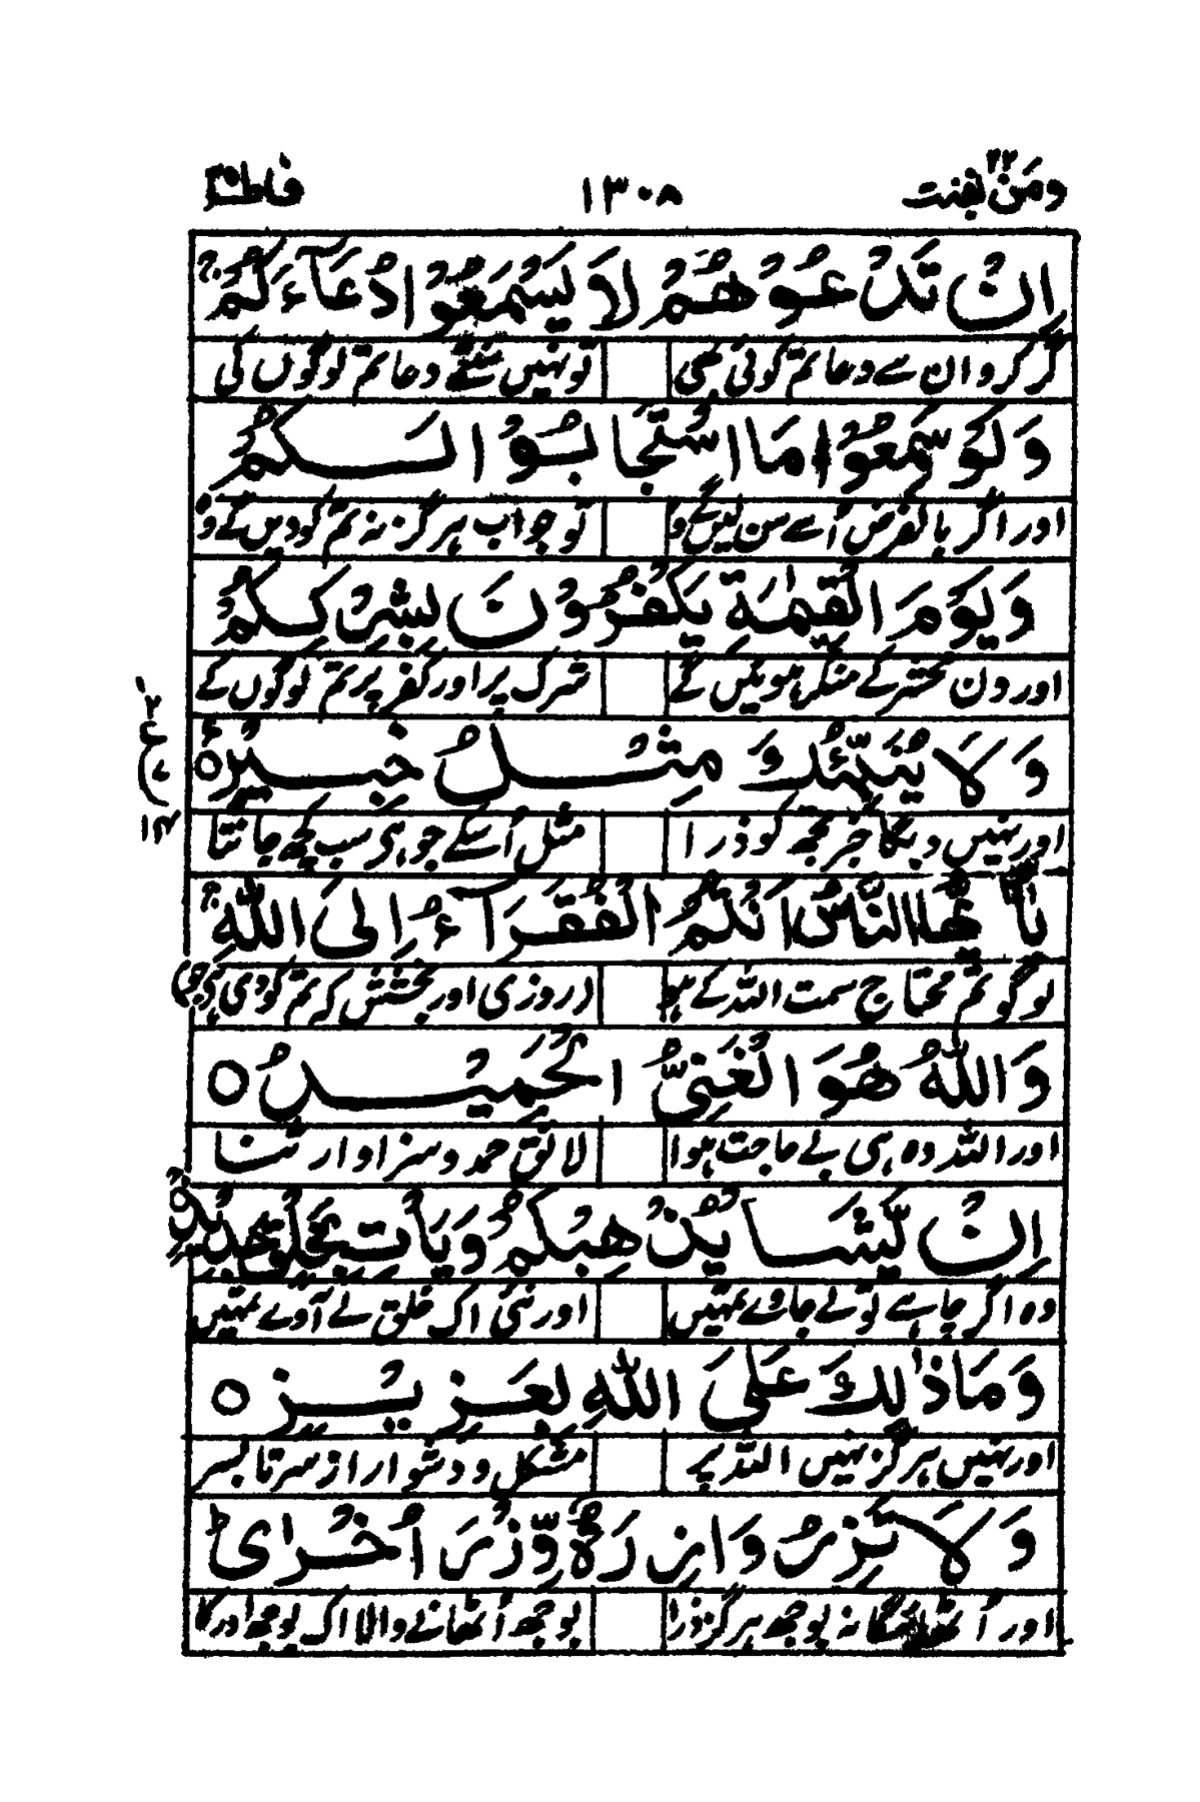 ومن یقنت ۲۲ ۱۳۰۸ فاطر ۳۵
اِنْ تَدْعُوْهُمْ لَا یَسْمَعُوْا دُعَآءَكُمْ ۚ
گر کرو ان سے دعا تم کوئی بھی تو نہیں سنتے دعا تم لوگوں کی
وَلَوْ سَمِعُوْا مَا اسْتَجَابُوْا لَكُمْ
اور اگر بالفرض اُسے سن لیں گے وہ تو جواب ہرگز نہ تم کو دیں گے وہ
وَیَوْمَ الْقِیٰمَةِ یَكْفُرُوْنَ بِشِرْكِكُمْ
اور دن محشر کے منکر ہوئیں گے شرک پر اور کفر پر تم لوگوں کے
وَلَا یُنَبِّئُكَ مِثْلُ خَبِیْرٍ ۠
اور نہیں دیگا خبر تجھ کو ذرا مثل اُسکے جو ہی سب کچھ جانتا
یٰۤاَیُّهَا النَّاسُ اَنْتُمُ الْفُقَرَآءُ اِلَی اللّٰهِ ۚ
لوگو تم محتاج سمت اللہ کے ہو (روزی اور بخشش کہ تم کو دی
وَاللّٰهُ هُوَ الْغَنِیُّ الْحَمِیْدُ ○
اور اللہ وہ ہی بے حاجت ہوا لائق حمد و سزاوار ثنا
اِنْ یَّشَاْ یُذْهِبْكُمْ وَیَاْتِ بِخَلْقٍ جَدِیْدٍ
وہ اگر چاہے تو لے جاوے تمہیں اور نئی اک خلق لے آوے تمہیں
وَمَا ذٰلِكَ عَلَی اللّٰهِ بِعَزِیْزٍ ○
اور نہیں ہرگز نہیں اللہ پر مشکل و دشوار از سر تا بسر
وَلَا تَزِرُ وَازِرَةٌ وِّزْرَ اُخْرٰی ؕ
اور اُٹھائیگا نہ بوجھ ہرگز ذرا بوجھ اُٹھانے والا اک بوجھ اور کا